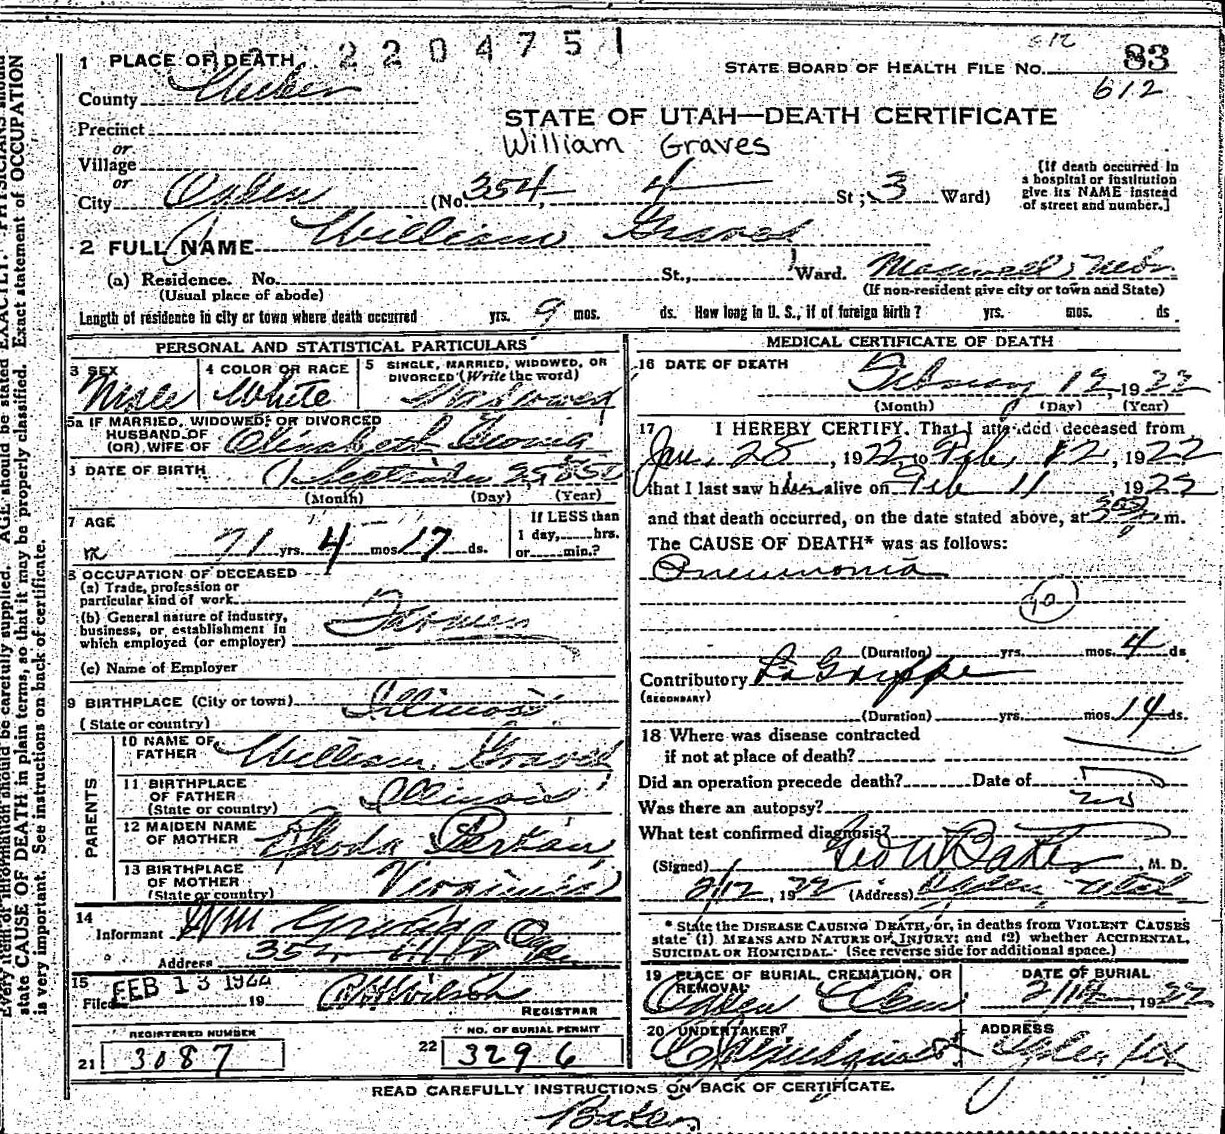 2204751
612
1 PLACE OF DEATH
STATE BOARD OF HEALTH FILE No. 83
612
County Weber
STATE OF UTAH—DEATH CERTIFICATE
William Graves
Precinct
or
Village
or
City Ogden (No. 354 4 St; 3 Ward)
[If death occurred in
a hospital or institution
give its NAME instead
of street and number.]
2 FULL NAME William Graves
(a) Residence. No. St., Ward. Maxwell, Nebr
(Usual place of abode) (If non-resident give city or town and State)
Length of residence in city or town where death occurred yrs. 9 mos. ds. How long in U. S., if of foreign birth? yrs. mos. ds
PERSONAL AND STATISTICAL PARTICULARS
3 SEX Male
4 COLOR OR RACE White
5 SINGLE, MARRIED, WIDOWED, OR
DIVORCED (Write the word) Widowed
5a IF MARRIED, WIDOWED, OR DIVORCED
HUSBAND OF
(OR) WIFE OF Elizabeth
DATE OF BIRTH September 25
(Month) (Day) (Year)
7 AGE 71 yrs. 4 mos. 17 ds.
If LESS than
1 day, hrs.
or min.?
8 OCCUPATION OF DECEASED
(a) Trade, profession or
particular kind of work
(b) General nature of industry,
business, or establishment in
which employed (or employer) Farmer
(c) Name of Employer
9 BIRTHPLACE (City or town) Illinois
(State or country)
PARENTS
10 NAME OF
FATHER William Graves
11 BIRTHPLACE
OF FATHER
(State or country) Illinois
12 MAIDEN NAME
OF MOTHER Rhoda
13 BIRTHPLACE
OF MOTHER
(State or country) Virginia
14
Informant Wm Graves
Address 354
15
Filed FEB 13 1922 19
REGISTRAR
REGISTERED NUMBER
21 3087
NO. OF BURIAL PERMIT
22 3296
MEDICAL CERTIFICATE OF DEATH
16 DATE OF DEATH
February 12, 1922
(Month) (Day) (Year)
17 I HEREBY CERTIFY, That I attended deceased from
Jan. 28, 1922 to Feb. 12, 1922
that I last saw him alive on Feb 11 1922
and that death occurred, on the date stated above, at m.
The CAUSE OF DEATH* was as follows:
Pneumonia
(Duration) yrs. mos. 4 ds
Contributory La Grippe
(SECONDARY)
(Duration) yrs. mos. 14 ds.
18 Where was disease contracted
if not at place of death?
Did an operation precede death? Date of
Was there an autopsy? no
What test confirmed diagnosis?
(Signed) Geo W Baker, M. D.
2/12, 1922 (Address) Ogden Utah
* State the DISEASE CAUSING DEATH, or, in deaths from VIOLENT CAUSES
state (1) MEANS AND NATURE OF INJURY; and (2) whether ACCIDENTAL,
SUICIDAL OR HOMICIDAL. (See reverse side for additional space.)
19 PLACE OF BURIAL, CREMATION, OR
REMOVAL
Ogden
DATE OF BURIAL
1922
20 UNDERTAKER
ADDRESS
Ogden
READ CAREFULLY INSTRUCTIONS ON BACK OF CERTIFICATE.
Baker
state CAUSE OF DEATH in plain terms, so that it may be properly classified. Exact statement of OCCUPATION
is very important. See instructions on back of certificate.